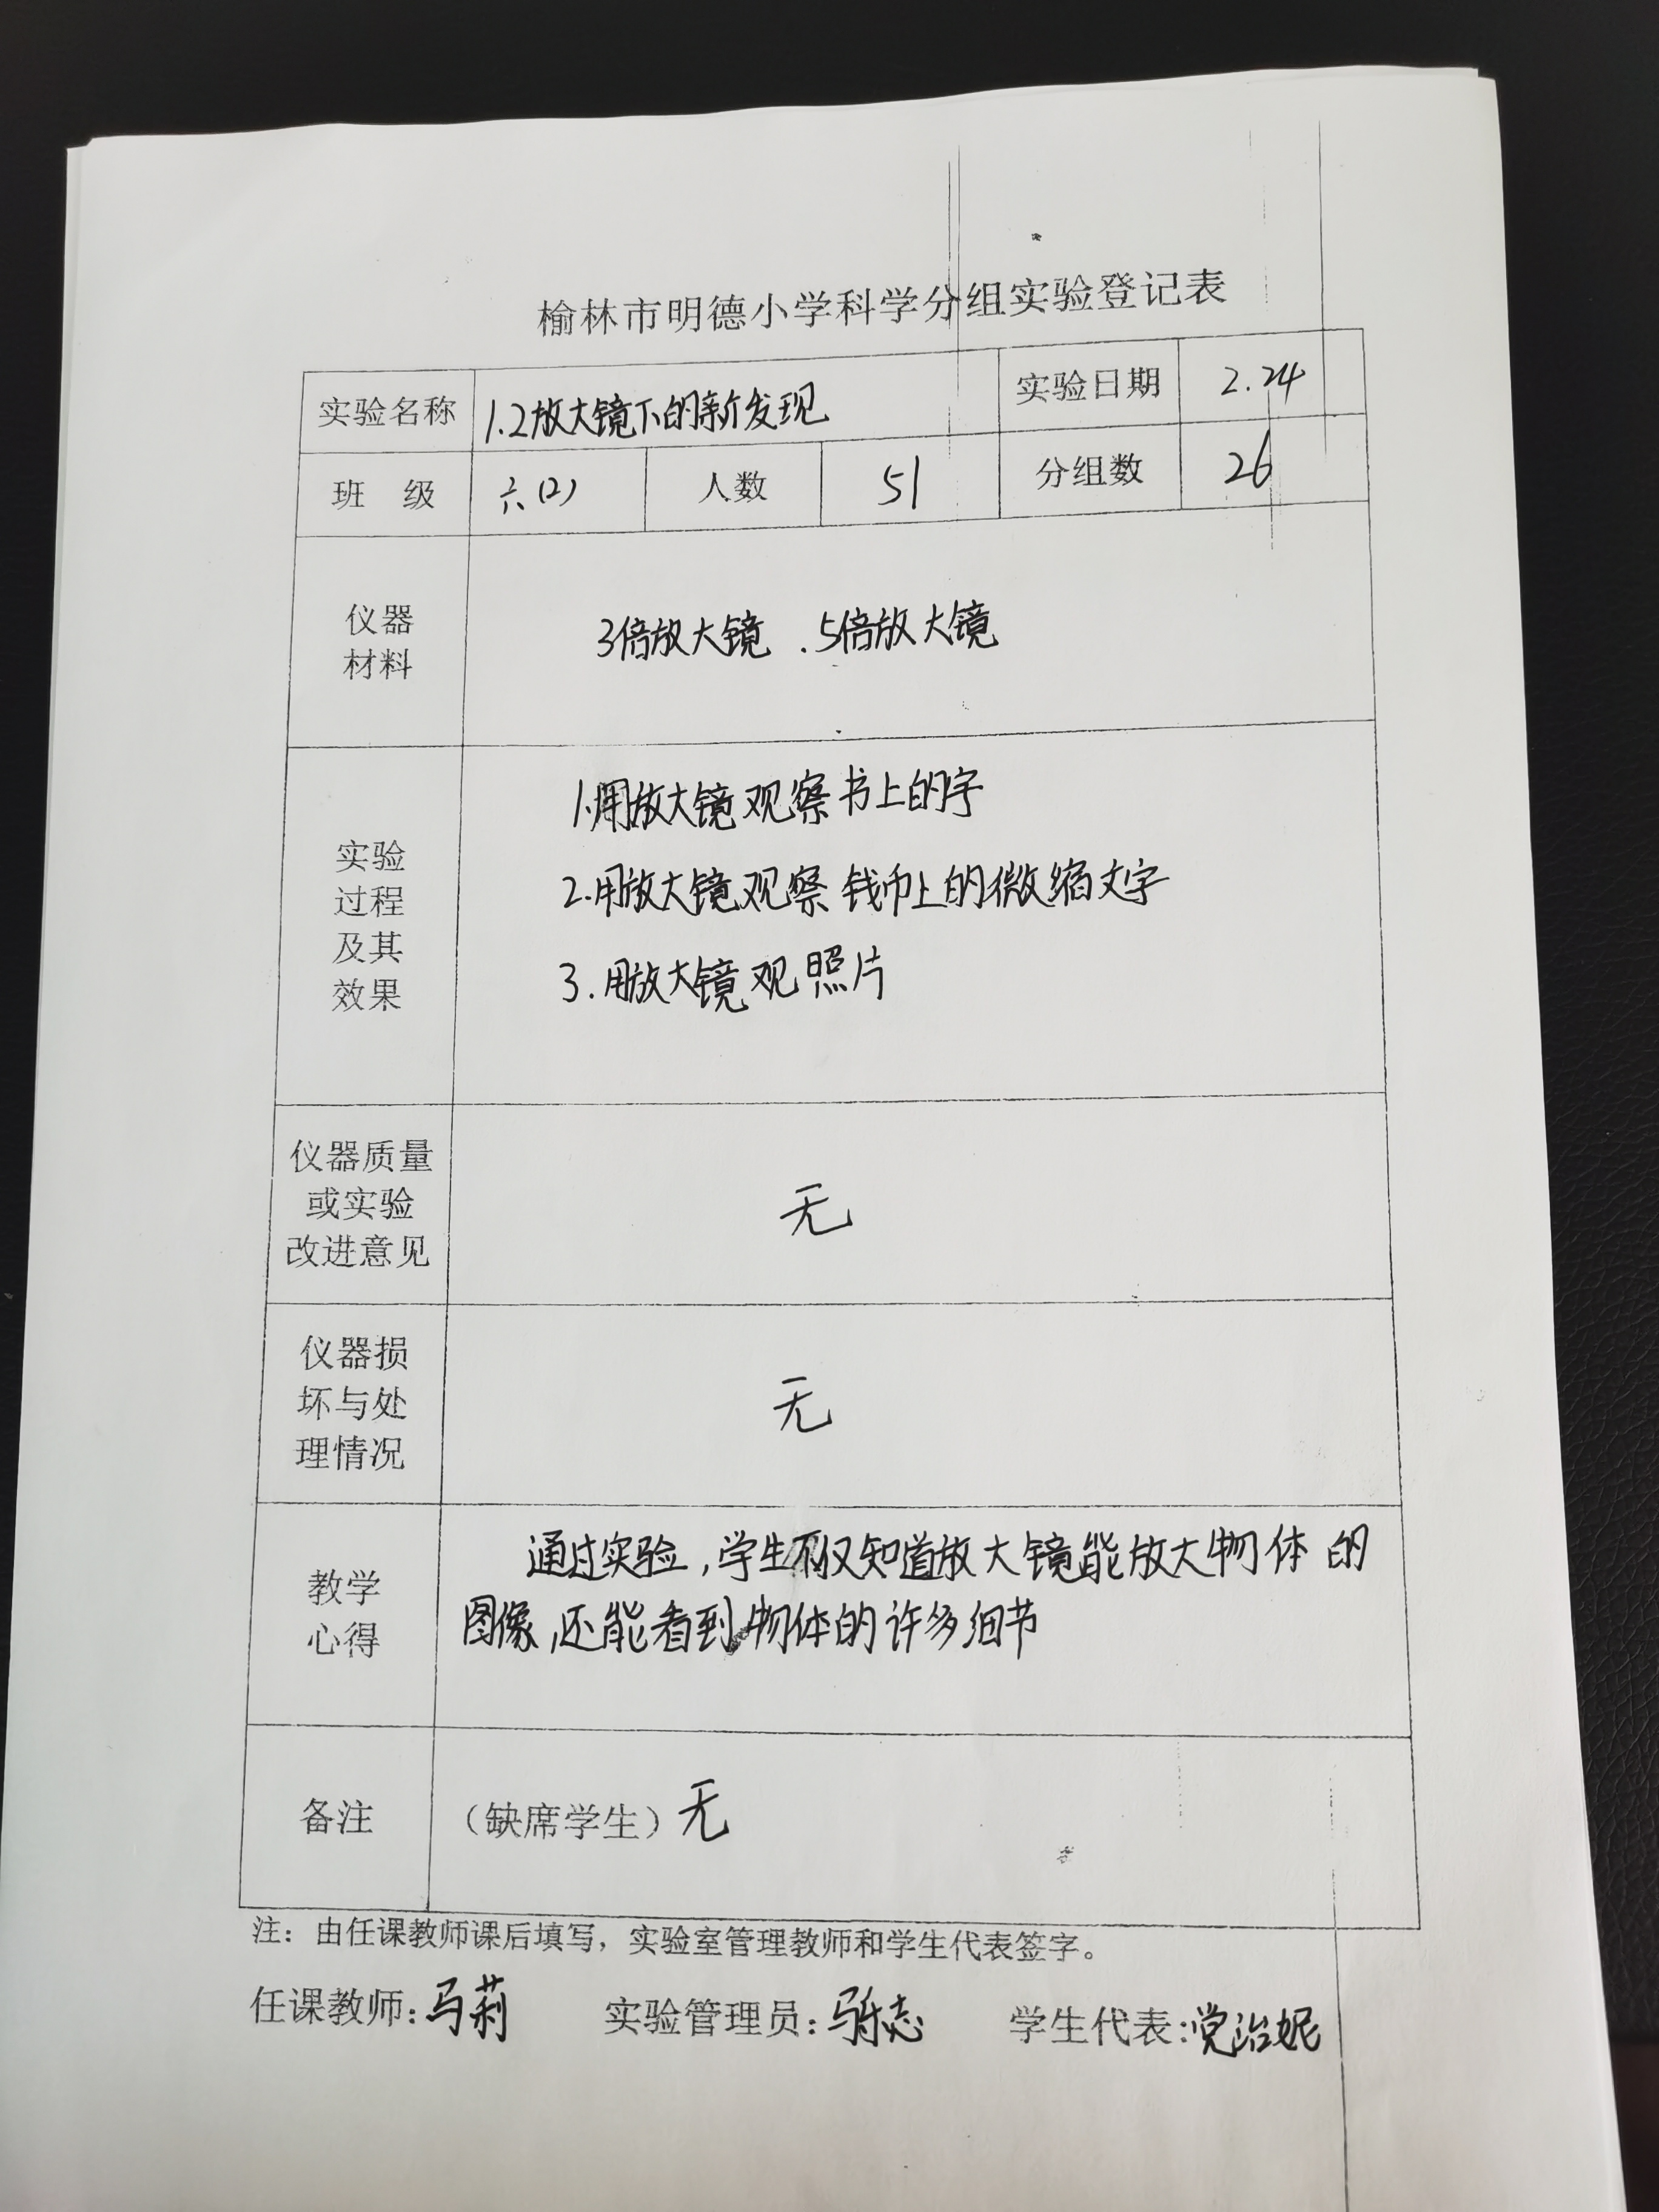 榆林市明德小学科学分组实验登记表
实验名称 1.2放大镜下的新发现 实验日期 2.24
班 级 六(2) 人数 51 分组数 26
仪器
材料
3倍放大镜 .5倍放大镜
实验
过程
及其
效果
1.用放大镜观察书上的字
2.用放大镜观察钱币上的微缩文字
3.用放大镜观照片
仪器质量
或实验
改进意见
无
仪器损
坏与处
理情况
无
教学
心得
通过实验,学生不仅知道放大镜能放大物体的
图像,还能看到物体的许多细节
备注 (缺席学生)无
注:由任课教师课后填写,实验室管理教师和学生代表签字。
任课教师:马莉 实验管理员: 学生代表:党治妮